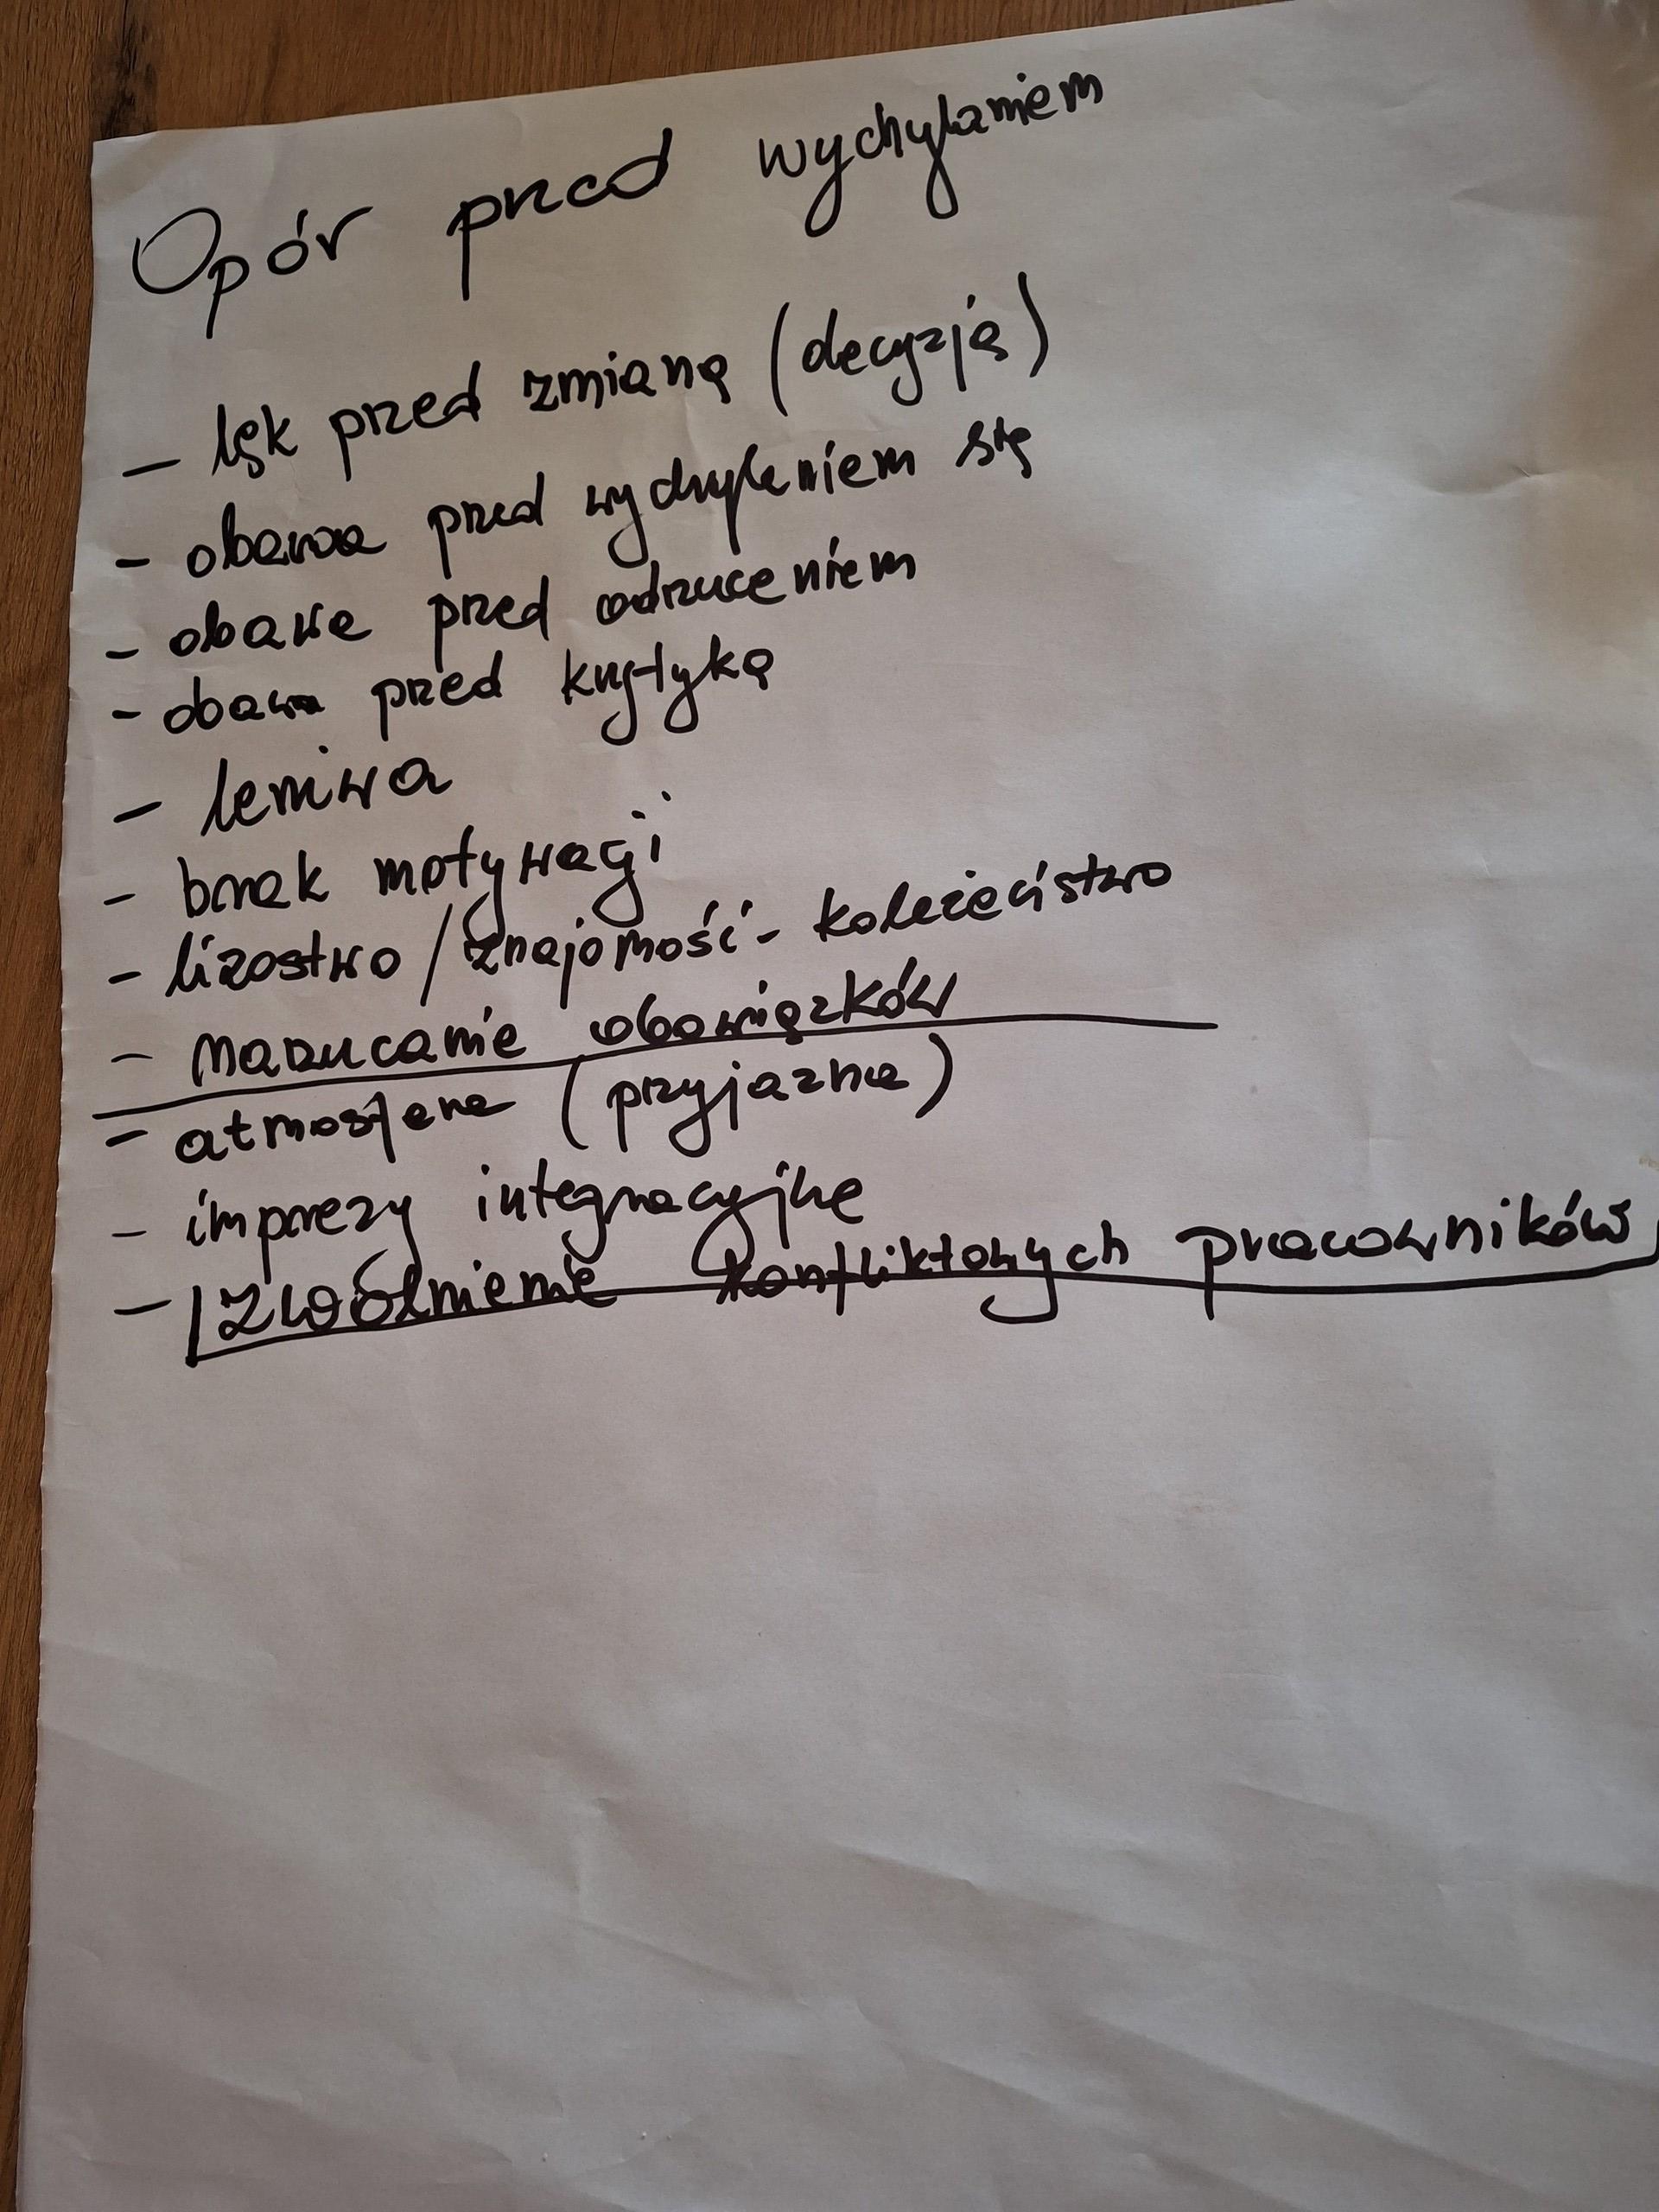 Opór przed wychylaniem
- lęk przed zmianą (decyzją)
- obawa przed wychylaniem się
- obawa przed odrzuceniem
- obawa przed krytyką
- leniwa
- brak motywacji
- lizostwo / znajomość - koleżeństwo
- narzucanie obowiązków
- atmosfera (przyjazna)
- imprezy integracyjne
- zwolnienie konfliktowych pracowników